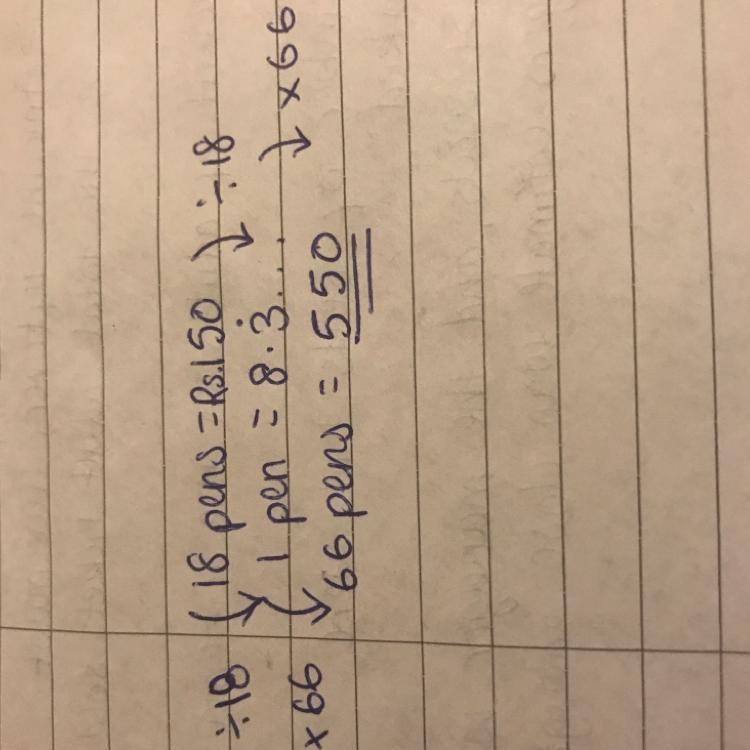 ÷18 (18 pens = Rs.150 ÷18
×66 1 pen = 8.3̇... ×66
66 pens = 550